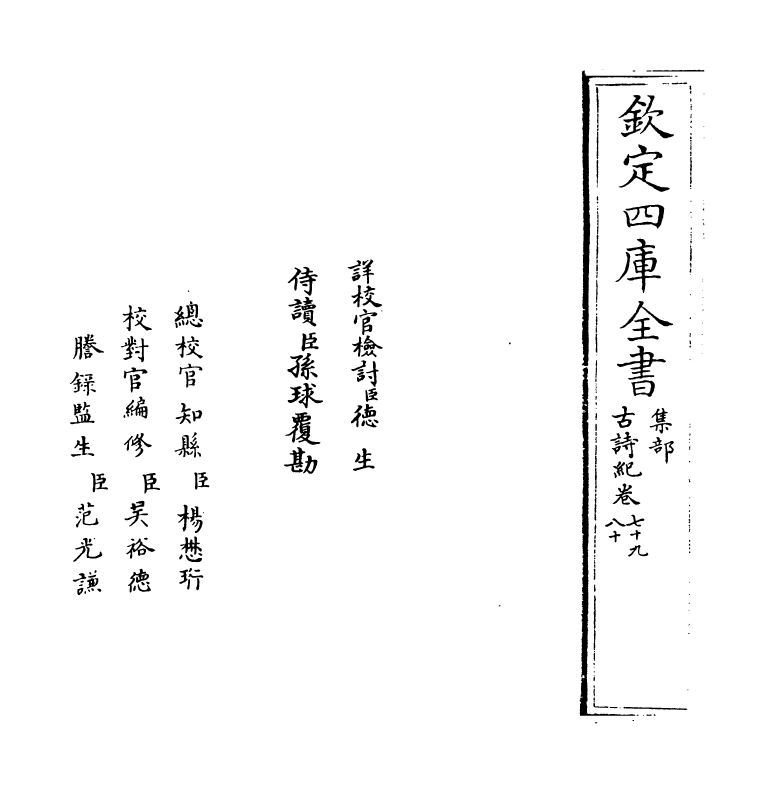 欽定四庫全書
集部
古詩紀卷七十九
八十
詳校官檢討臣德生
侍讀臣孫球覆勘
總校官知縣臣楊懋珩
校對官編修臣吴裕德
謄錄監生臣范光謙